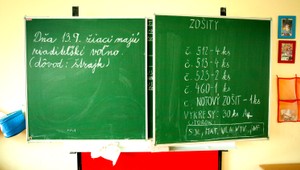 Dňa 13.9. žiaci majú
riaditeľské voľno.
(dôvod: štrajk)
ZOŠITY
č. 512 - 4 ks
č. 513 - 4 ks
č. 523 - 2 ks
č. 460 - 1 ks
č. NOTOVÝ ZOŠIT - 1 ks
VÝKRESY: 30 ks